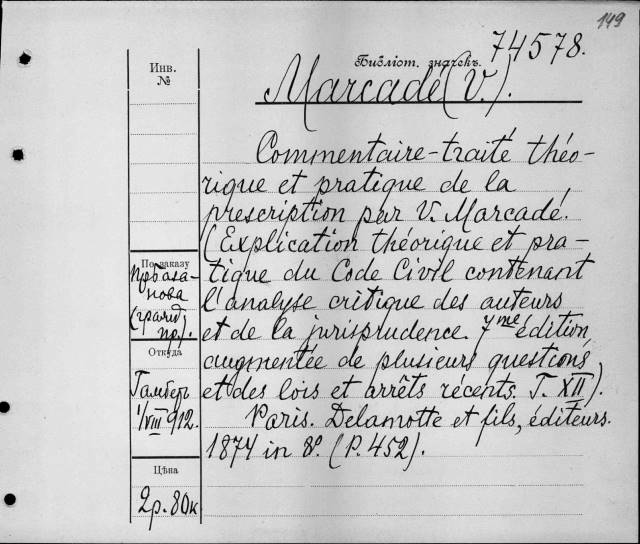 149
Библіот. значекъ. 74578.
Инв.
№
Marcadé (V.).
Commentaire-traité théo-
rique et pratique de la
prescription par V. Marcadé.
(Explication théorique et pra-
tique du Code Civil contenant
l'analyse critique des auteurs
et de la jurisprudence. 7me édition
augmentée de plusieurs questions
et des lois et arrêts récents. T. XII).
Paris. Delamotte et fils, éditeurs.
1874 in 8º. (P. 452).
По заказу
(гражд.
пр.).
Откуда
Гамберъ
1/VIII 912.
Цѣна
2р. 80к